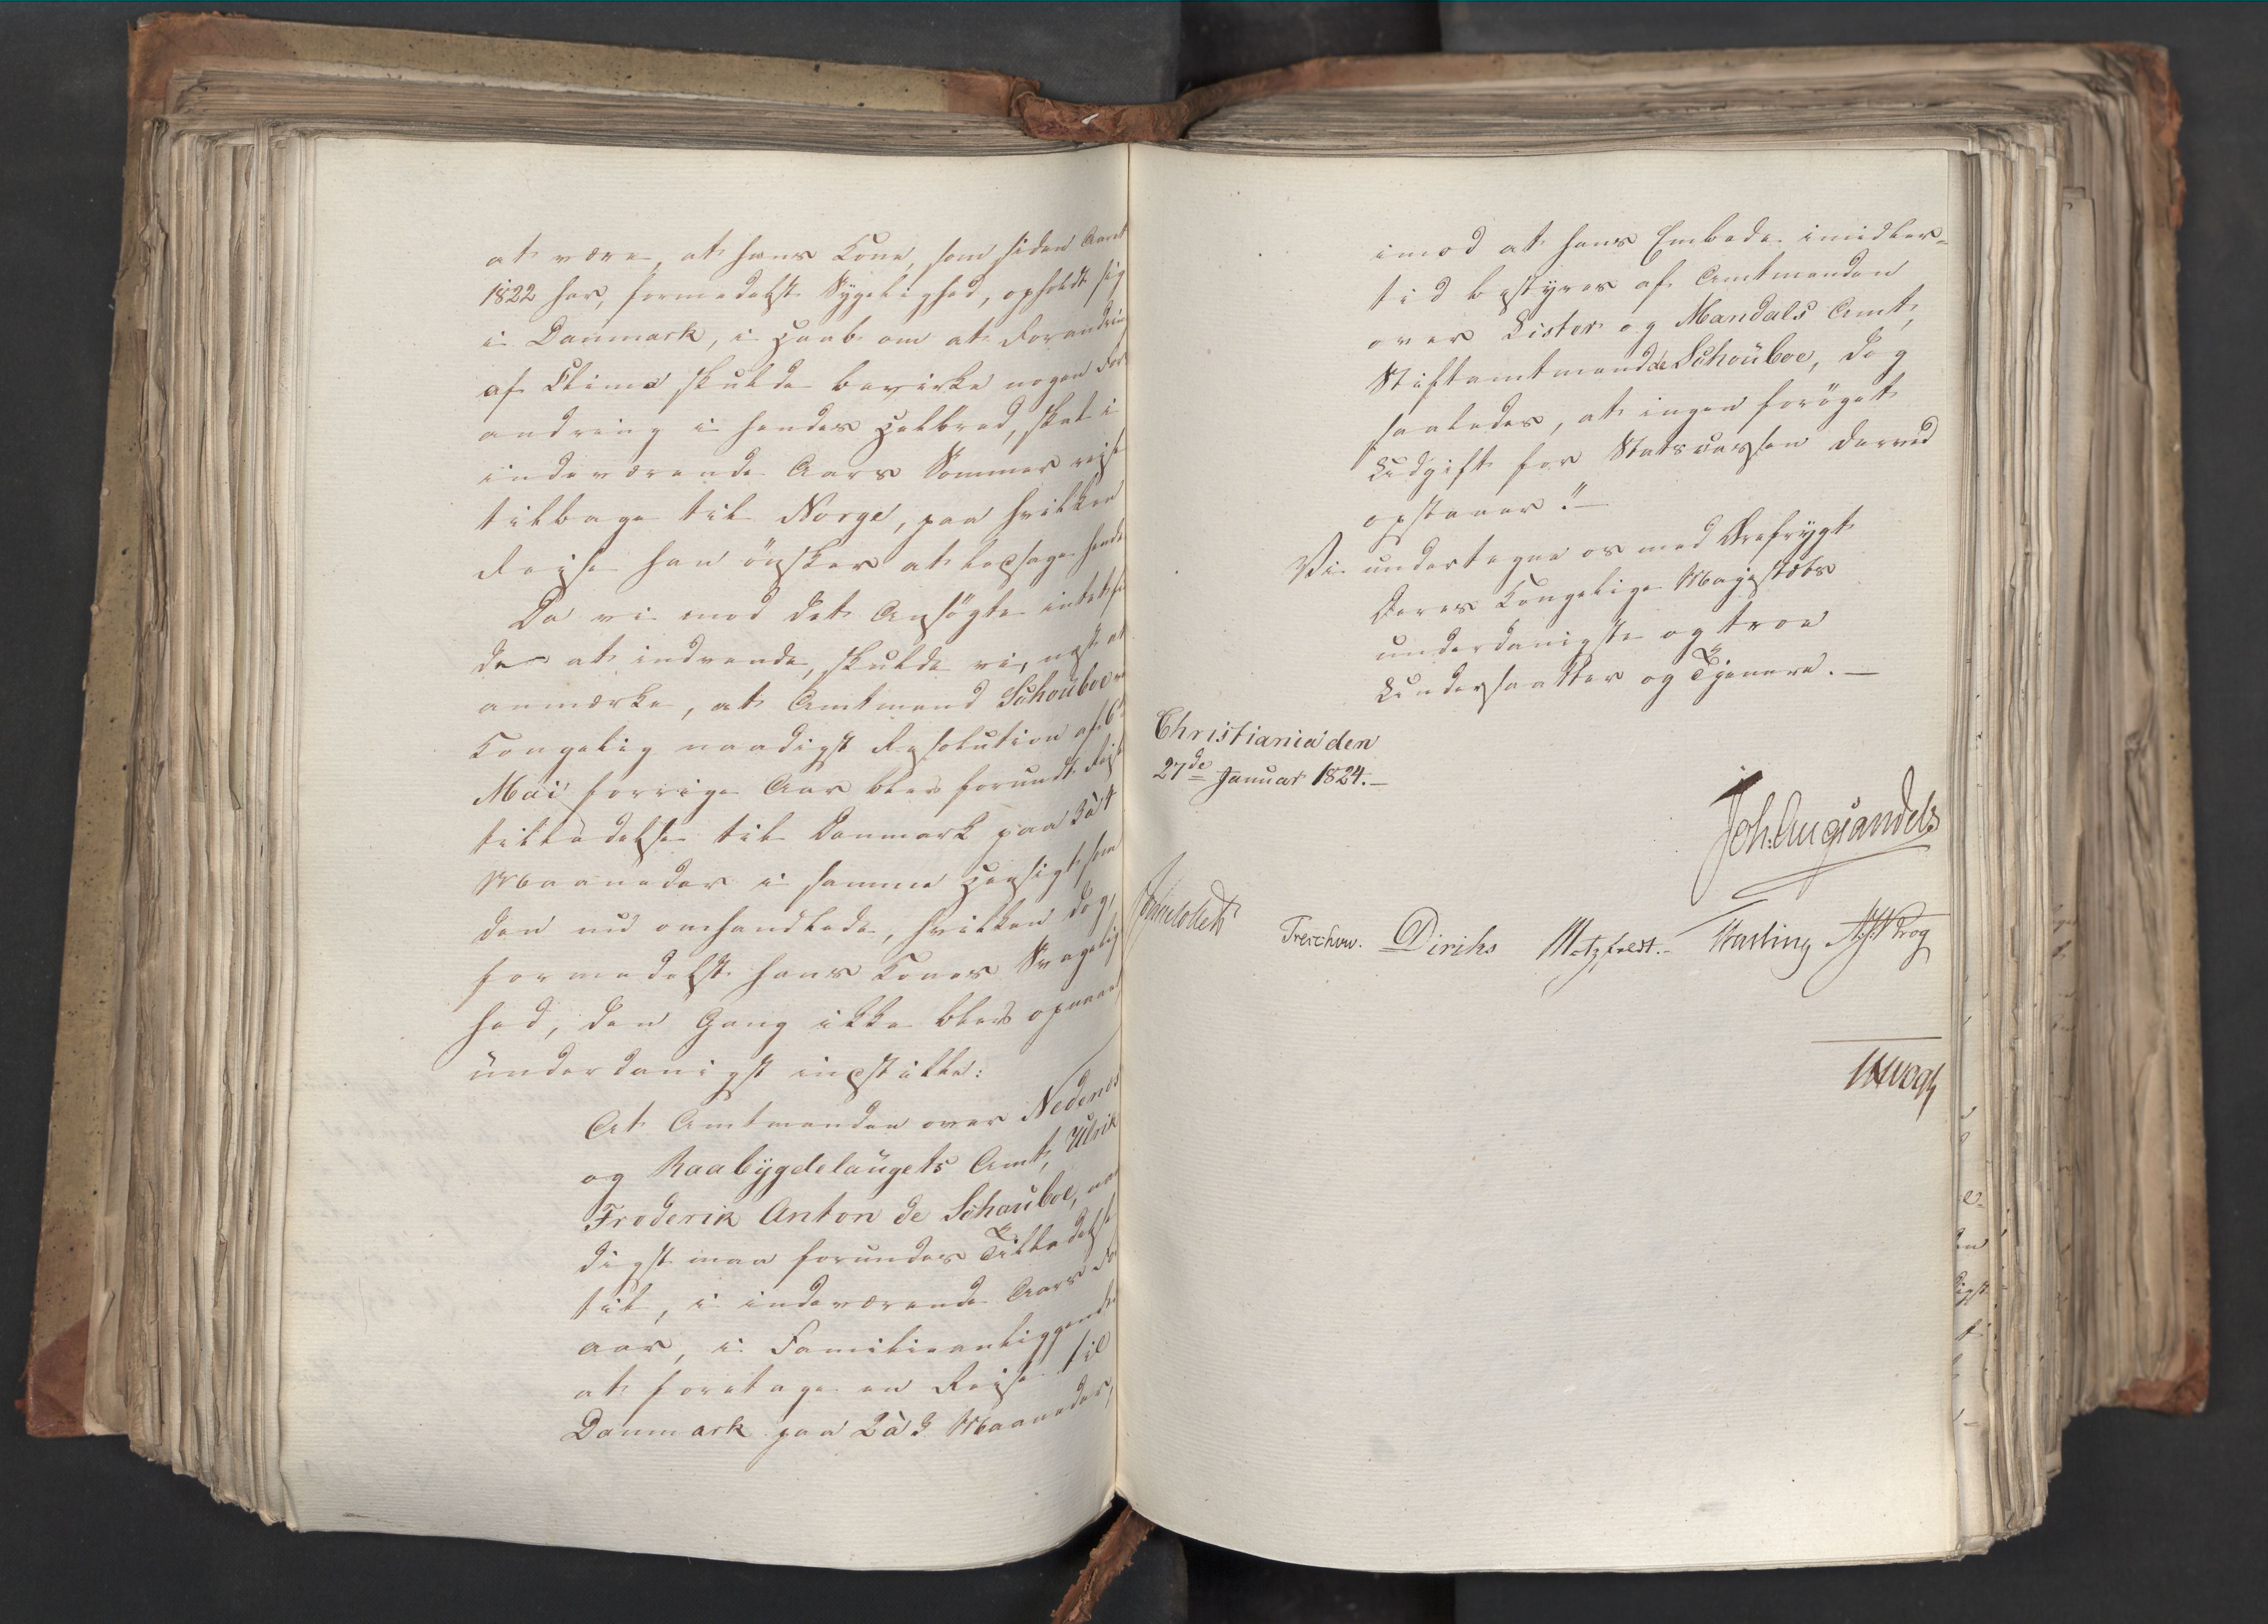 at være, at hans Kone, som siden Aaret
1822 har, formedelst Sygelighed, opholdt sig
i Danmark, i Haab om at Forandring
af Clima skulde bevirke nogen For-
andring i hendes Helbred, skal i
indeværende Aars Sommer reise
tilbage til Norge, paa hvilken
Reise han önsker at ledsage hende
Da vi mod det Ansögte intet fin-
de at indvende, skulde vi, næst at
anmærke, at Amtmand Schouboe ved
Kongelig naadigst Resolution af 6te
Mai forrige Aar blev forundt Reise-
tilladelse til Danmark paa 3 à 4
Maaneder i samme Hensigt som
den nu omhandlede, hvilken dog,
formedelst hans Kones Svagelig-
hed, den Gang ikke blev opnaaet
ünderdanigst indstille:
At Amtmanden over Nedenes
og Raabÿgdelaugets Amt, Ulrik
Frederik Anton de Schouboe, naa-
digst maa forundes Tilladelse
til, i indeværende Aars For-
aar, i Familieanliggender
at foretage en Reise til
Danmark paa 2 à 3 Maaneder,
imod at hans Embede imidler-
tid bestyres af Amtmanden
over Lister og Mandals Amt,
Stiftamtmand de Schouboe, dog
saaledes, at ingen forøget
Udgift for Statscassen derved
opstaaer."—
Vi undertegne os med Ærefrygt
Deres Kongelige Majestæts
underdanigste og troe
Undersaatter og Tjenere.—
Christiania den
27de Januar 1824.—
Joh: Aug: Sandels
Jonas Collett
Treschow. Diriks Motzfeldt.- Fasting Krog
Vogt